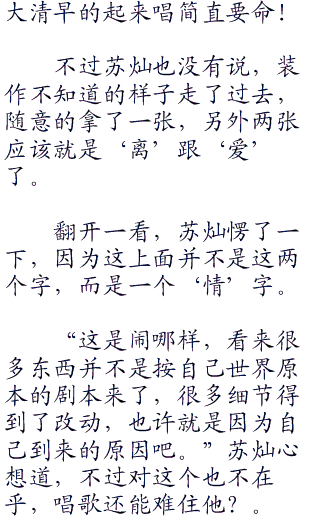 大清早的起来唱简直要命！
不过苏灿也没有说，装
作不知道的样子走了过去，
随意的拿了一张，另外两张
应该就是‘离’跟‘爱’
了。
翻开一看，苏灿愣了一
下，因为这上面并不是这两
个字，而是一个‘情’字。
“这是闹哪样，看来很
多东西并不是按自己世界原
本的剧本来了，很多细节得
到了改动，也许就是因为自
己到来的原因吧。”苏灿心
想道，不过对这个也不在
乎，唱歌还能难住他？。